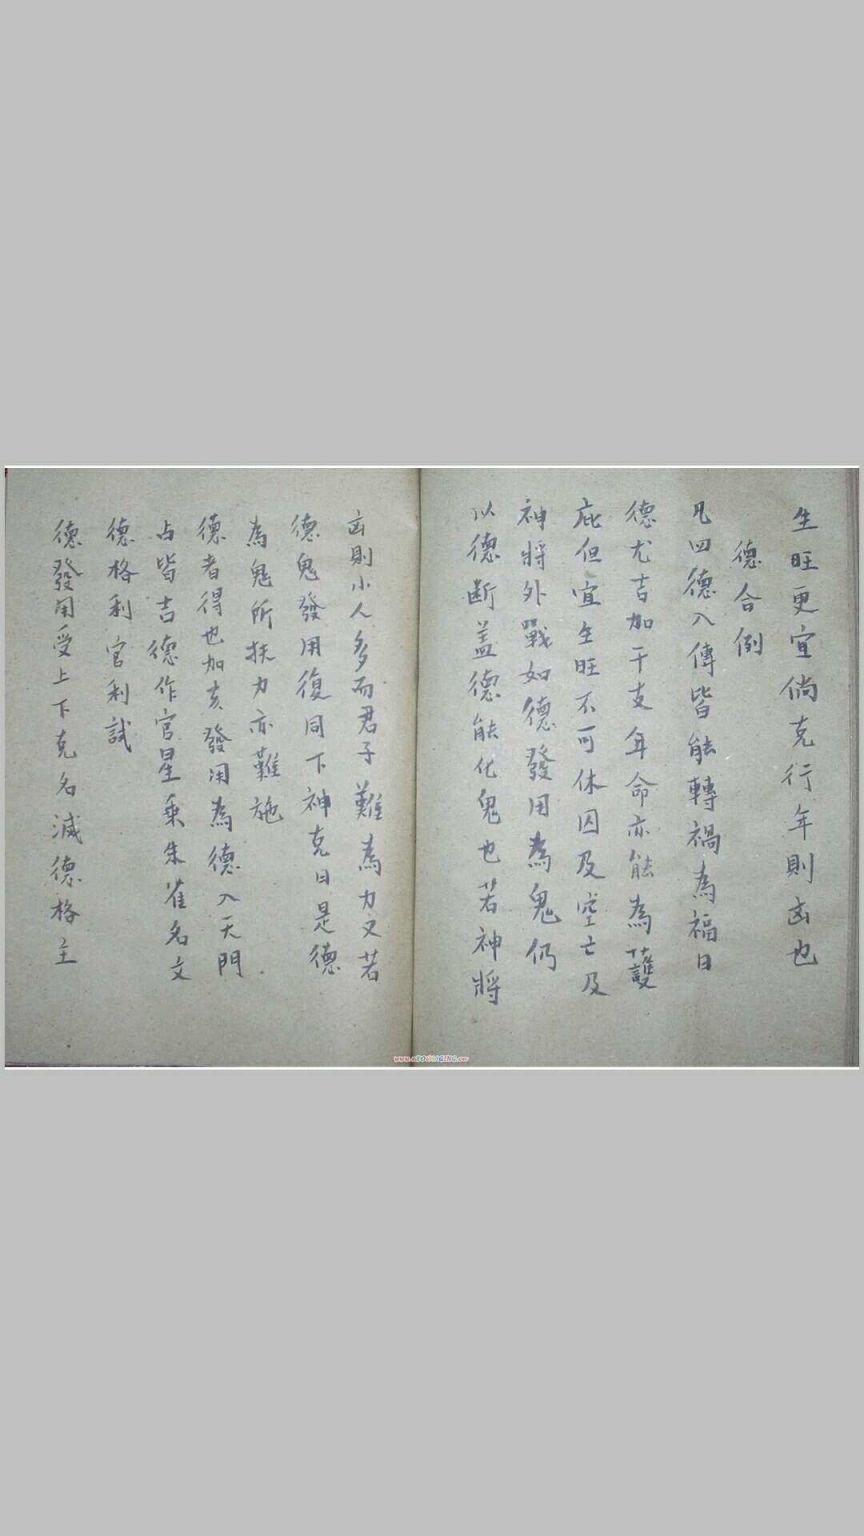 生旺更宜倘克行年則凶也
德合例
凡四德入傳皆能轉禍為福日
德尤吉加干支年命亦能為護
庇但宜生旺不可休囚及空亡及
神將外戰如德發用為鬼仍
以德斷盖德能化鬼也若神將
凶則小人多而君子難為力又若
德鬼發用復同下神克日是德
為鬼所扶力亦難施
德者得也加亥發用為德入天門
占皆吉德作官星乘朱雀名文
德格利官利試
德發用受上下克名減德格主